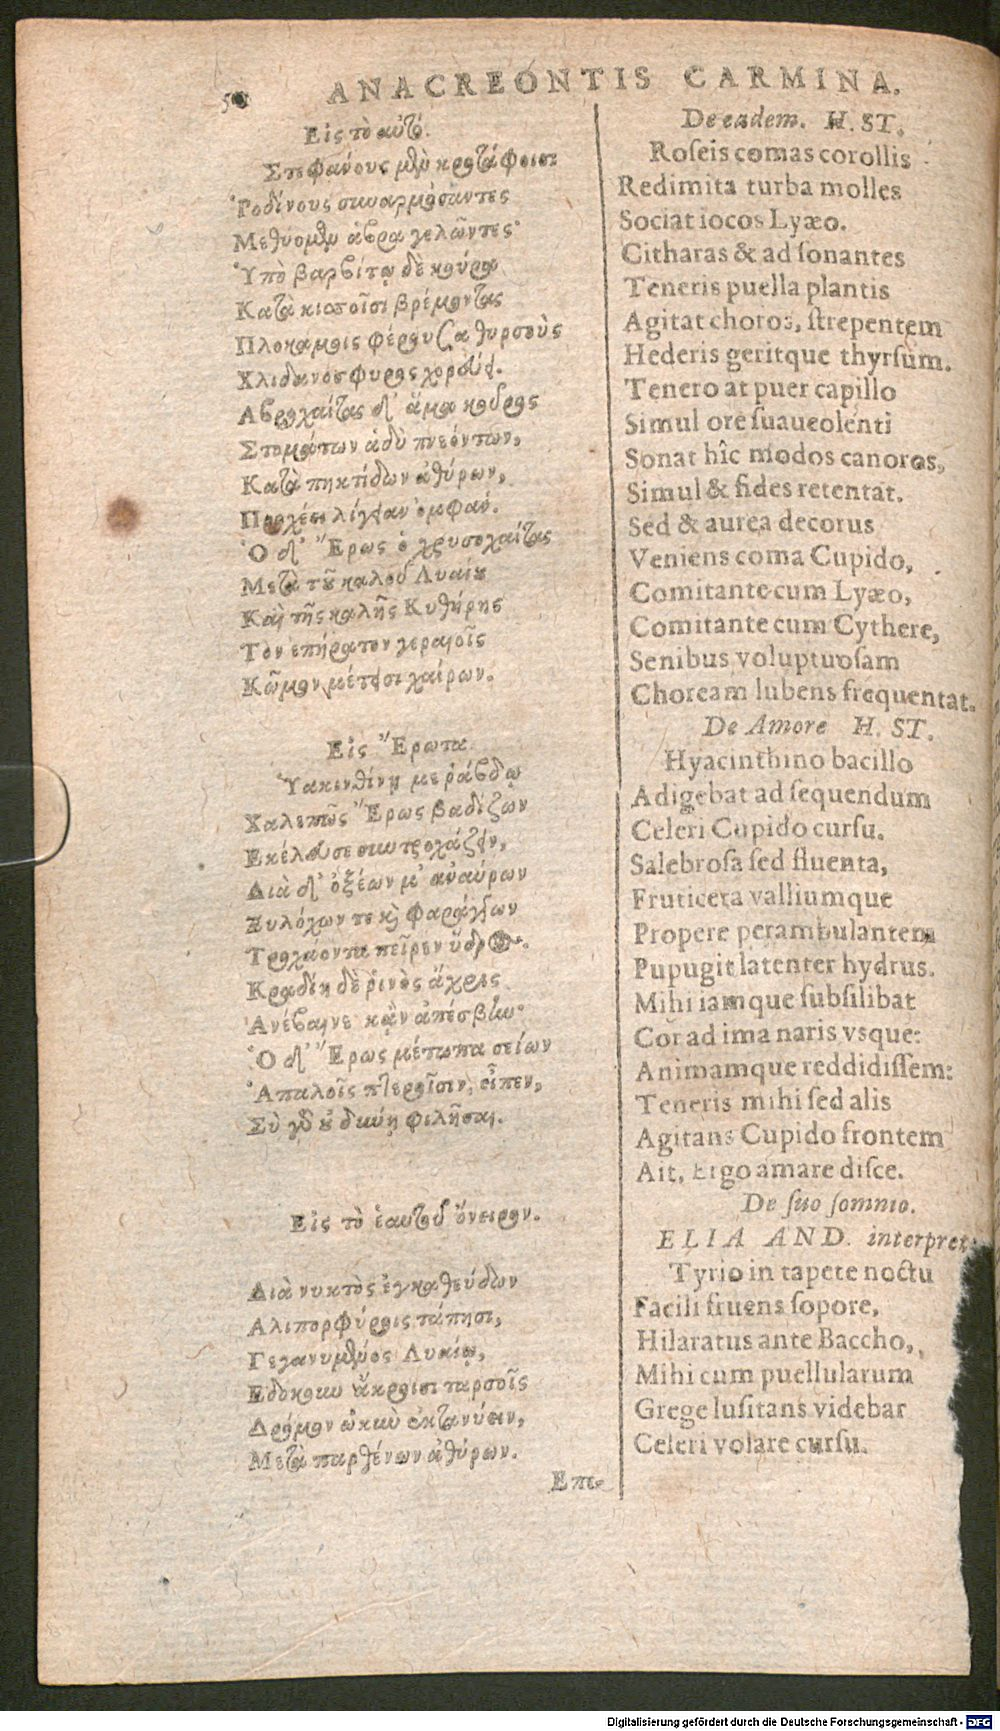 ANACREONTIS CARMINA.
Εἰς τὸ αὐτό.
Στεφάνους μὲν κροτάφοισι
Ῥοδίνους συναρμόσαντες
Μεθύομεν ἁβρὰ γελῶντες·
Ὑπὸ βαρβίτῳ δὲ κούρα
Κατὰ κισσοῖσι βρέμοντας
Πλοκάμοις φέρουσα θυρσοὺς
Χλιδανόσφυρος χορεύει.
Ἁβροχαίτας δ' ἅμα κοῦρος
Στομάτων ἁδὺ πνεόντων,
Κατὰ πηκτίδων ἀθύρων,
Προχέει λίγειαν ὀμφάν.
Ὁ δ' Ἔρως ὁ χρυσοχαίτας
Μετὰ τοῦ καλοῦ Λυαίου
Καὶ τῆς καλῆς Κυθήρης
Τὸν ἐπήρατον γεραιοῖς
Κῶμον μέτεισι χαίρων.
Εἰς Ἔρωτα.
Ὑακινθίνῃ με ῥάβδῳ
Χαλεπῶς Ἔρως βαδίζων
Εκέλευσε συντροχάζειν,
Διὰ δ' ὀξέων μ' ἀναύρων
Ξυλόχων τε καὶ φαράγγων
Τροχάοντα πεῖρεν ὕδρος.
Κραδίη δὲ ῥινὸς ἄχρις
Ἀνέβαινε κἂν ἀπέσβην·
Ὁ δ' Ἔρως μέτωπα σείων
Ἁπαλοῖς πτεροῖσιν, εἶπεν,
Σὺ γὰρ οὐ δύνῃ φιλῆσαι.
Εἰς τὸ ἑαυτοῦ ὄνειρον.
Διὰ νυκτὸς ἐγκαθεύδων
Αλιπορφύροις τάπησι,
Γεγανυμένος Λυαίῳ,
Εδόκουν ἄκροισι ταρσοῖς
Δρόμον ὠκὺν ἐκτανύειν,
Μετὰ παρθένων ἀθύρων.
Επε-
De eadem. H. ST.
Roseis comas corollis
Redimita turba molles
Sociat iocos Lyæo.
Citharas & ad sonantes
Teneris puella plantis
Agitat choros, strepentem
Hederis geritque thyrsum.
Tenero at puer capillo
Simul ore suaueolenti
Sonat hîc modos canoros,
Simul & fides retentat.
Sed & aurea decorus
Veniens coma Cupido,
Comitante cum Lyæo,
Comitante cum Cythere,
Senibus voluptuosam
Choream lubens frequentat.
De Amore H. ST.
Hyacinthino bacillo
Adigebat ad sequendum
Celeri Cupido cursu.
Salebrosa sed fluenta,
Fruticeta valliumque
Propere perambulantem
Pupugit latenter hydrus.
Mihi iamque subsilibat
Cor ad ima naris vsque:
Animamque reddidissem:
Teneris mihi sed alis
Agitans Cupido frontem
Ait, Ergo amare disce.
De suo somnio.
ELIA AND. interpret.
Tyrio in tapete noctu
Facili fruens sopore,
Hilaratus ante Baccho,
Mihi cum puellularum
Grege lusitans videbar
Celeri volare cursu.
Digitalisierung gefördert durch die Deutsche Forschungsgemeinschaft - DFG